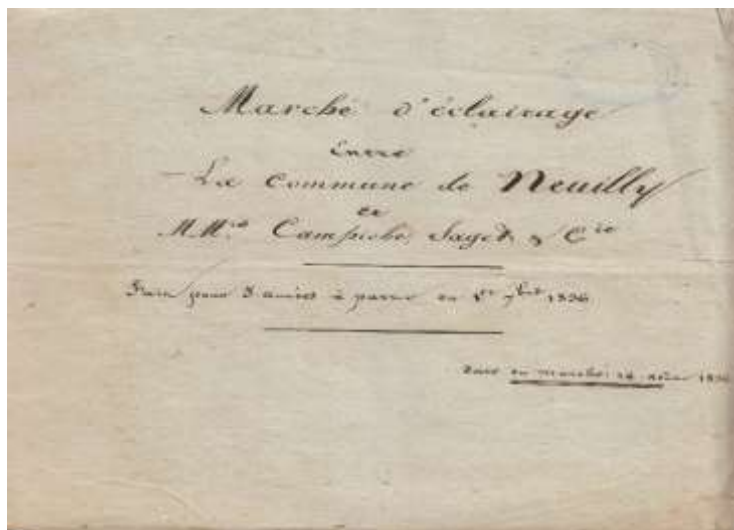 Marché d'éclairage
Entre
La commune de Neuilly
et
MM.rs Campiche, Saget, & Cie
pour 5 années à partir du 1er 7bre 1836
Date du marché: 14 août 1836